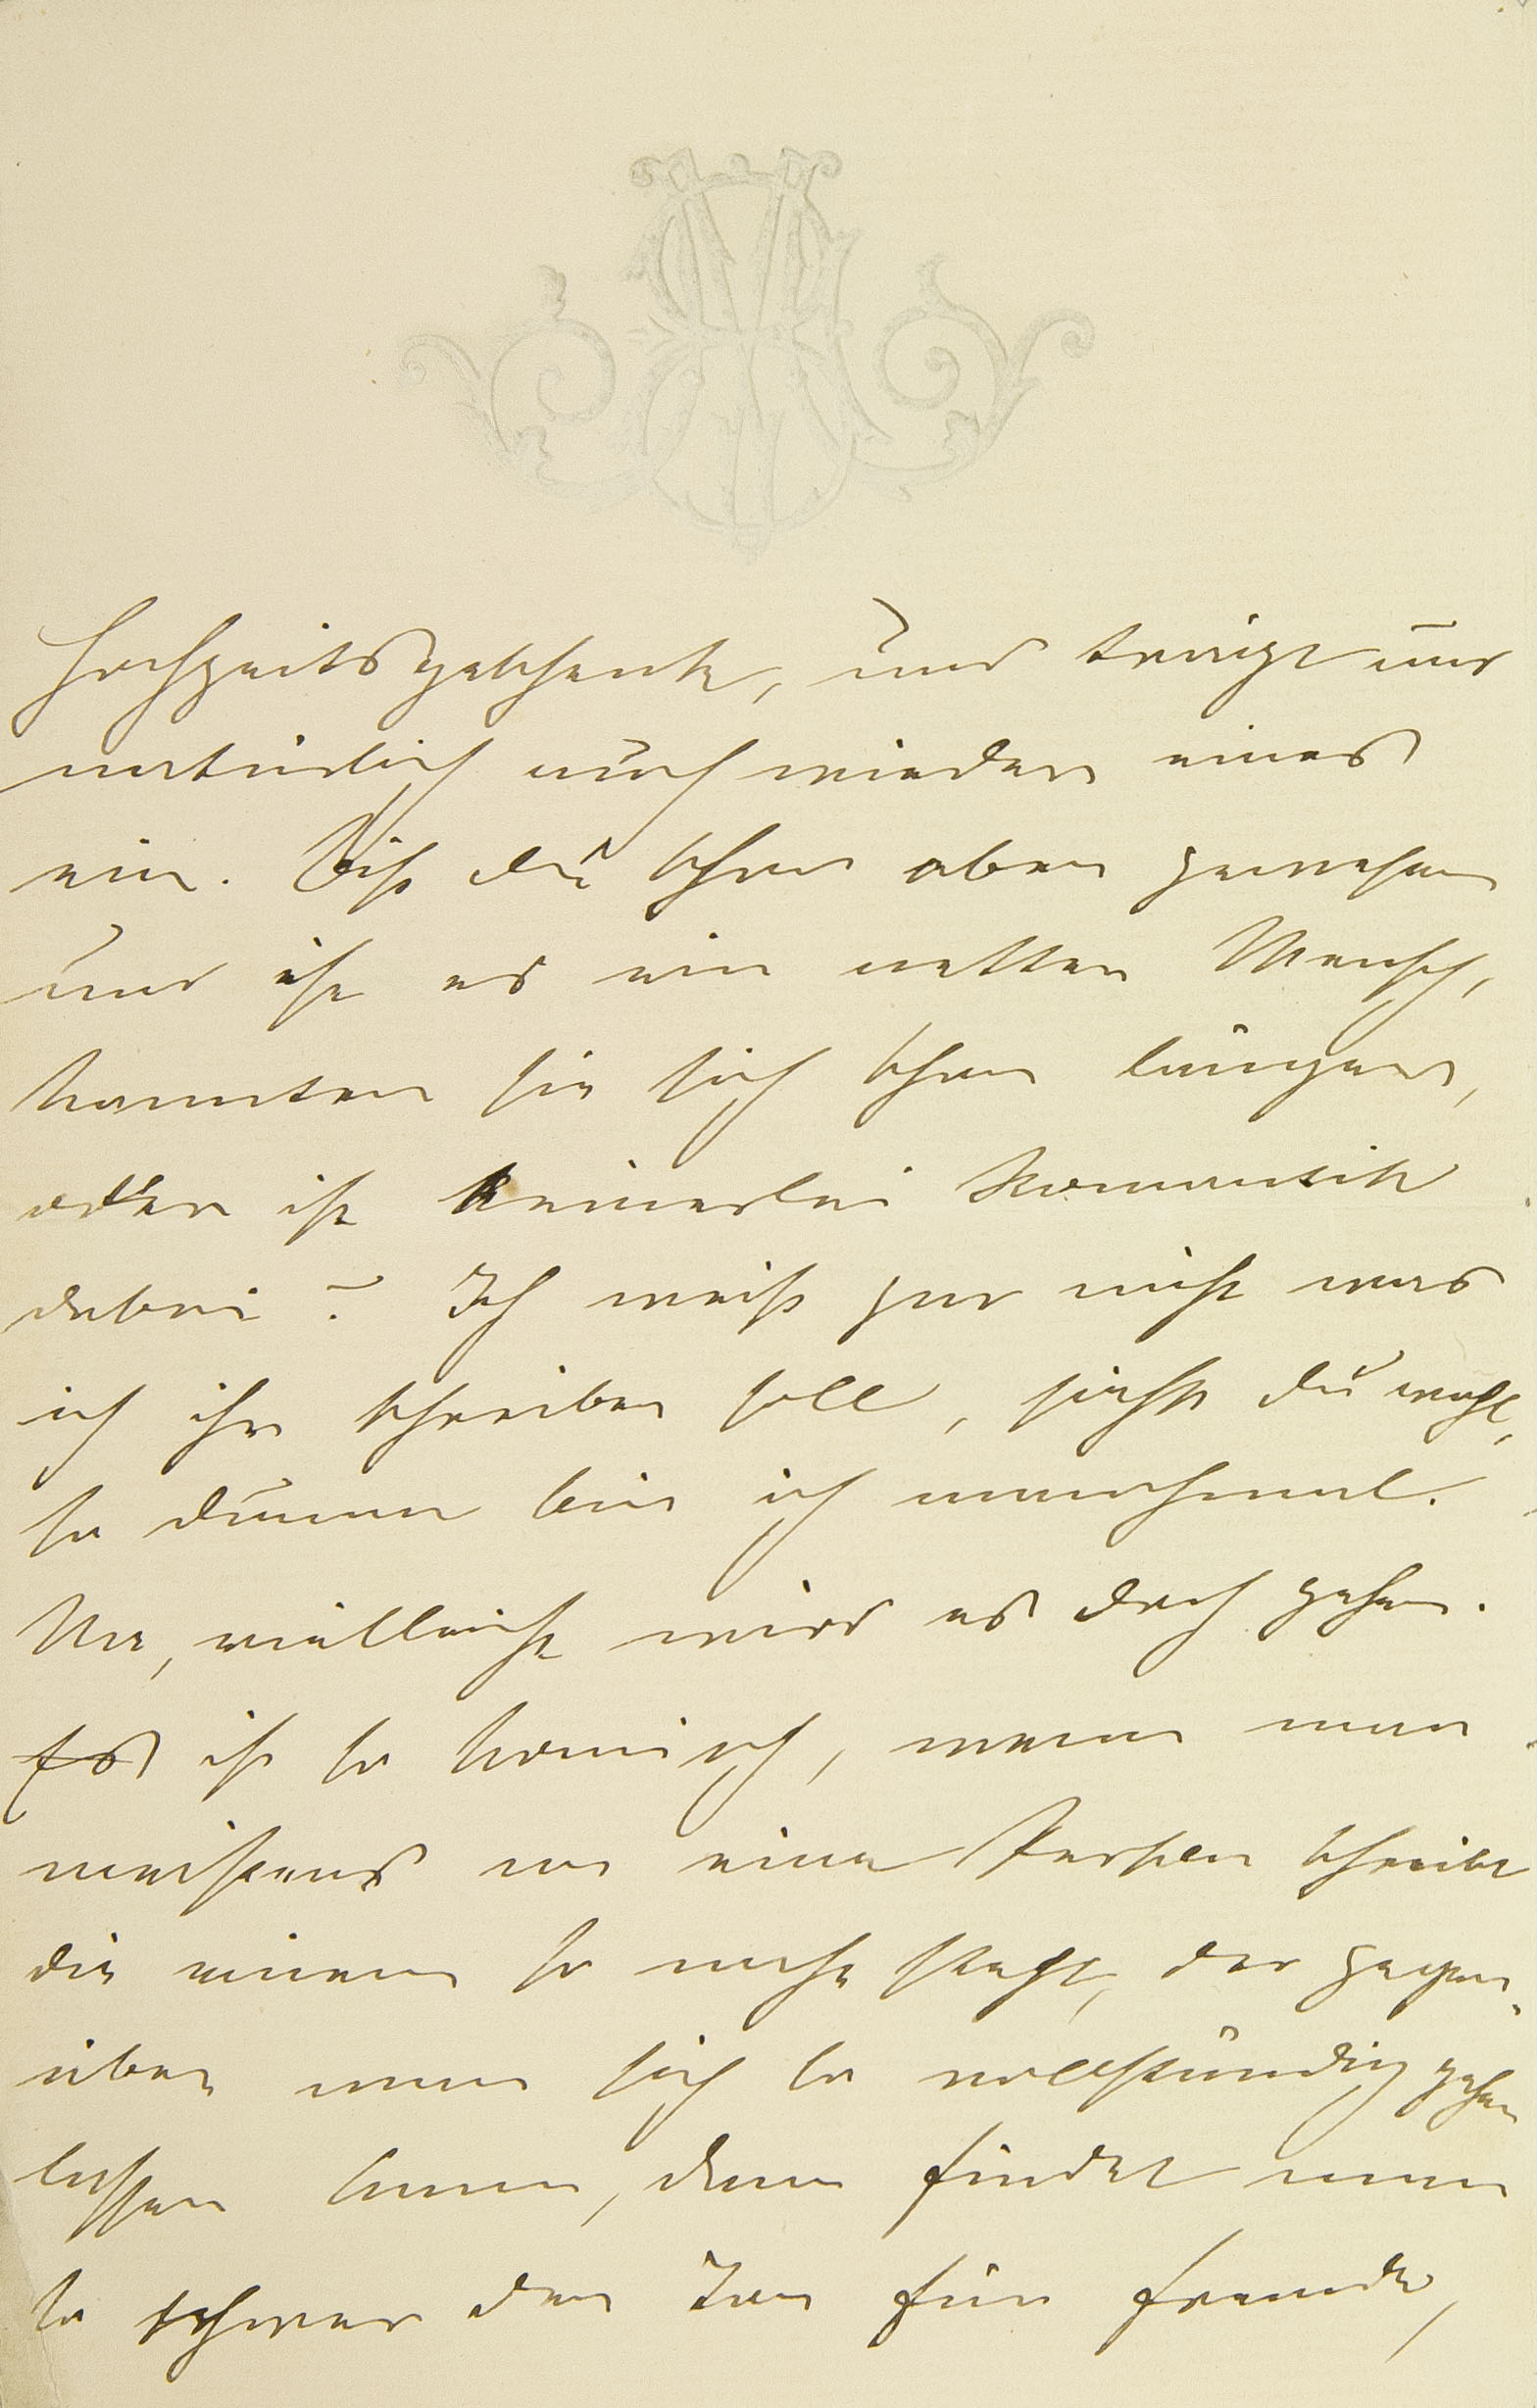 Hochzeitsgeschenk, und bringt uns
natürlich auch wieder eines
ein. Bist du schon oben gewesen
und ist es ein netter Mensch,
kannten sie sich schon länger,
oder ist keinerlei Romantik
dabei? Ich weiß gar nicht was
ich ihr schreiben soll, siehst du wohl,
so dumm bin ich manchmal.
Na, vielleicht wird es doch gehen.
Es ist so komisch, wenn man
meistens an eine Person schreibt
die einem so nahe steht, der gegen-
über man sich so vollständig gehen
lassen kann, dann findet man
so schwer den Ton für fremde,